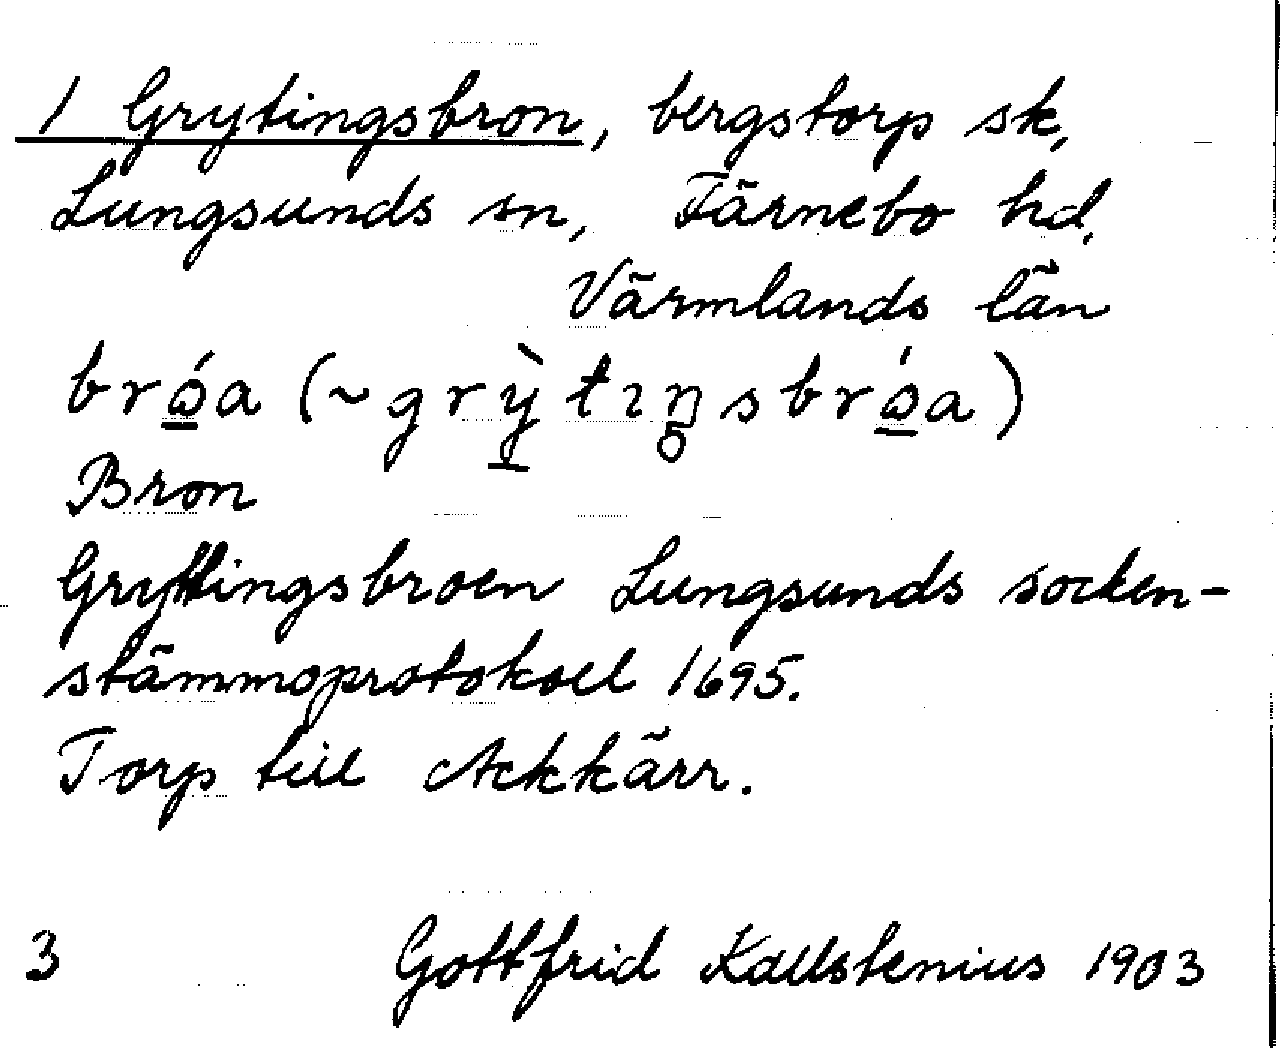 1 Grytingsbron, bergstorp sk,
Lungsunds sn, Färnebo hd,
Värmlands län
brǫ́a (~ grỳ̱tıŋ̥sbrǫ́a)
Bron
Gryttingsbroen Lungsunds socken-
stämmoprotokoll 1695.
Torp till Ackkärr.
3 Gottfrid Kallstenius 1903